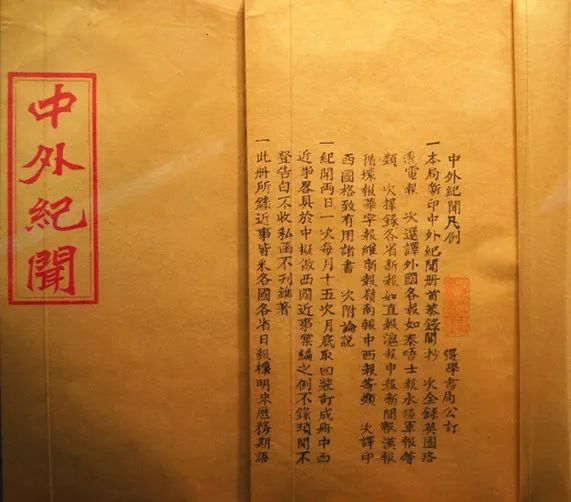 中外紀聞
中外紀聞凡例 強學書局公訂
一本局新印中外紀聞册首恭錄閣抄 次全錄英國路
透電報 次選譯外國各報如泰晤士報水陸軍報等
類 次擇錄各省新報如直報滬報申報新聞報漢報
循環報華字報維新報嶺南報中西報等類 次譯印
西國格致有用諸書 次附論說
一紀聞兩日一次每月十五次月底取回裝訂成册中西
近事畧具於中擬倣西國近事彙編之例不錄瑣聞不
登告白不收私函不刊雜著
一此册所錄近事皆采各國各省日報標明來歷務期語